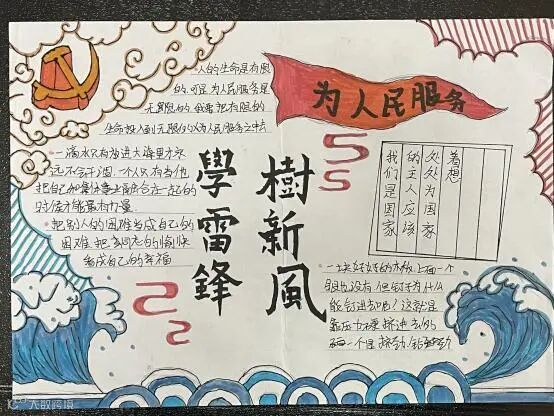 人的生命是有限
的,可是为人民服务是
无限的,我要把有限的
生命投入到无限的以为人民服务之中去
一滴水只有放进大海里才永
远不会干涸,一个人只有当他
把自己和集体事业融合在一起的
时候才能最有力量.
把别人的困难当成自己的
困难,把同志的愉快
看成自己的幸福
學雷鋒
樹新風
为人民服务
着想
处处为国家
的主人应该
我们是国家
一块好好的木板,上面一个
眼也没有,但钉子为什么
能钉进去呢?这就是
靠压力硬挤进去的